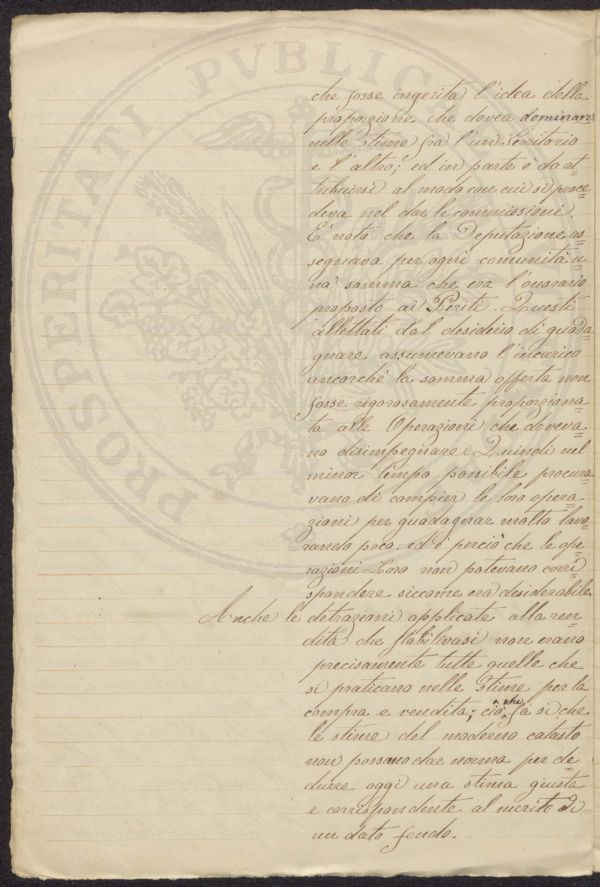 PROSPERITATI PVBLIC
che fosse ingerita l'idea della
proporzione che dovea dominare
nelle stime fra l'un Territorio
e l'altro; ed in parte è da at=
tribuirsi al modo con cui si proce=
deva nel dar le commissioni.
E' nota che la Deputazione as=
segnava per ogni comunità u=
na somma che era l'onorario
proposto ai Periti. Questi
allettati dal desiderio di guada=
gnare assumevano l'incarico
ancorchè la somma offerta non
fosse rigorosamente proporziona=
ta alle Operazioni che doveva=
no disimpegnare. Quindi nel
minor tempo possibile procura=
vano di compier le loro opera=
zioni per guadagnar molto lavo=
rando poco: ed è perciò che le ope=
razioni Loro non potevano corri=
spondere siccome era desiderabile
Anche le detrazioni applicate alla ren=
dita che stabilivasi non erano
precisamente tutte quelle che
si praticano nelle Stime per la
compra e vendita; ciò che fa sì che
le stime del moderno catasto
non possano dar norma per de=
durre oggi una stima giusta
e corrispondente al merito di
un dato fondo.